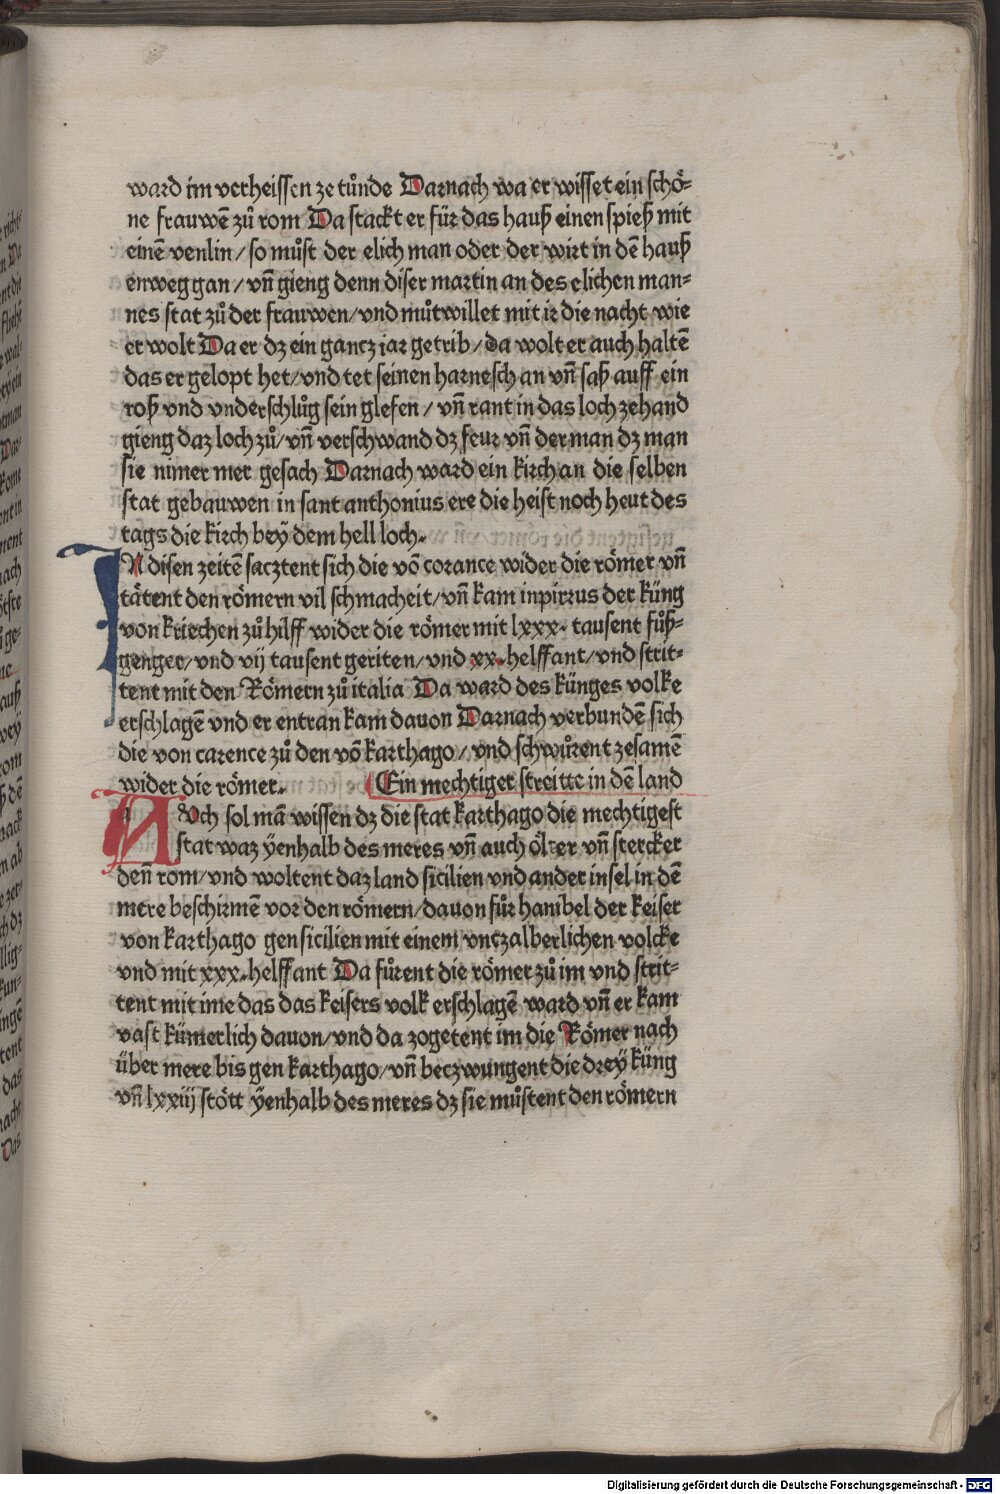 ward im verheissen ze tůnde Darnach wa er wisset ein schö⸗
ne frauwē zů rom Da stackt er für das hauß einen spieß mit
einē venlin/ so můst der elich man oder der wirt in dē hauß
enweg gan/ vñ gieng denn diser martin an des elichen man⸗
nes stat zů der frauwen/vnd můtwillet mit ir die nacht wie
er wolt Da er dz ein gancz jar getrib/da wolt er auch haltē
das er gelopt het/vnd tet seinen harnesch an vñ saß auff ein
roß vnd vnderschlůg sein glefen/ vñ rant in das loch zehand
gieng daz loch zů/vñ verschwand dz feur vñ der man dz man
sie nimer mer gesach Darnach ward ein kirch an die selben
stat gebauwen in sant anthonius ere die heist noch heut des
tags die kirch beÿ dem hell loch.
IN disen zeitē sacztent sich die vō corance wider die römer vñ
tätent den römern vil schmacheit/vñ kam inpirrus der küng
von kriechen zů hilff wider die römer mit lxxx. tausent fůß⸗
genger/vnd vij tausent geriten/vnd xx. helffant/vnd strit⸗
tent mit den Römern zů italia Da ward des künges volke
erschlagē vnd er entran kam dauon Darnach verbundē sich
die von carence zů den vō karthago/vnd schwůrent zesamē
wider die römer. Ein mechtiger streitte in dē land
AVch sol mā wissen dz die stat karthago die mechtigest
stat waz ÿenhalb des meres vñ auch ölter vñ stercker
deñ rom/vnd woltent daz land sicilien vnd ander insel in dē
mere beschirmē vor den römern/dauon fůr hanibel der keiser
von karthago gen sicilien mit einem vnczalberlichen volcke
vnd mit xxx. helffant Da fůrent die römer zů im vnd strit⸗
tent mit ime das das keisers volk erschlagē ward vñ er kam
vast kümerlich dauon/vnd da zogetent im die Römer nach
über mere bis gen karthago/vñ beczwungent die dreÿ küng
vñ lxxiij stött ÿenhalb des meres dz sie můstent den römern
Digitalisierung gefördert durch die Deutsche Forschungsgemeinschaft - DFG